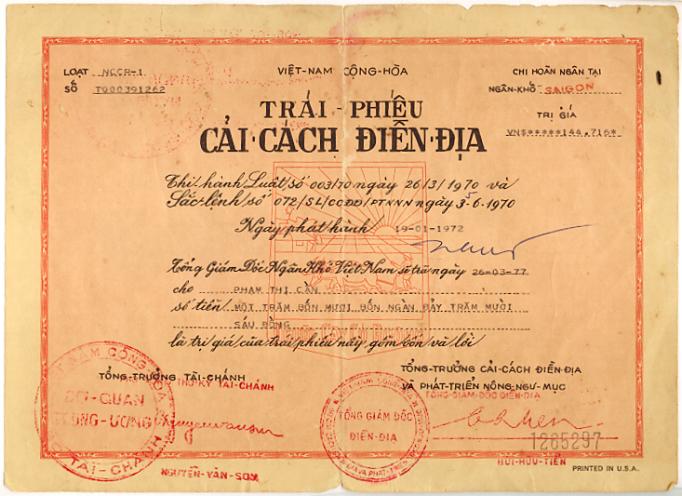 LOẠT NCCR-1
SỐ T000391262
VIỆT-NAM CỘNG-HÒA
CHỈ HOÀN NGÂN TẠI
NGÂN-KHỐ SAIGON
TRỊ GIÁ
VN$*****144.716*
TRÁI-PHIẾU
CẢI-CÁCH ĐIỀN-ĐỊA
Thi hành Luật số 003/70 ngày 26/3/1970 và
Sắc-lệnh số 072/SL/CCĐĐ/PTNNN ngày 5-6-1970
Ngày phát hành 19-01-1972
Tổng Giám Đốc Ngân Khố Việt Nam sẽ trả ngày 26-03-77
cho PHẠM THỊ CẦN
số tiền MỘT TRĂM BỐN MƯƠI BỐN NGÀN BẢY TRĂM MƯỜI
SÁU ĐỒNG
là trị giá của trái phiếu nầy, gồm vốn và lời
TỔNG-TRƯỞNG TÀI-CHÁNH
TỔNG-TRƯỞNG CẢI-CÁCH ĐIỀN-ĐỊA
VÀ PHÁT-TRIỂN NÔNG-NGƯ-MỤC
TỔNG-GIÁM-ĐỐC ĐIỀN-ĐỊA
VIỆT NAM CỘNG HÒA
CƠ-QUAN
TRUNG-ƯƠNG
TÀI-CHÁNH
TỔNG GIÁM ĐỐC
ĐIỀN-ĐỊA
1285297
NGUYỄN-VĂN-SON
BÙI-HỮU-TIẾN
PRINTED IN U.S.A.